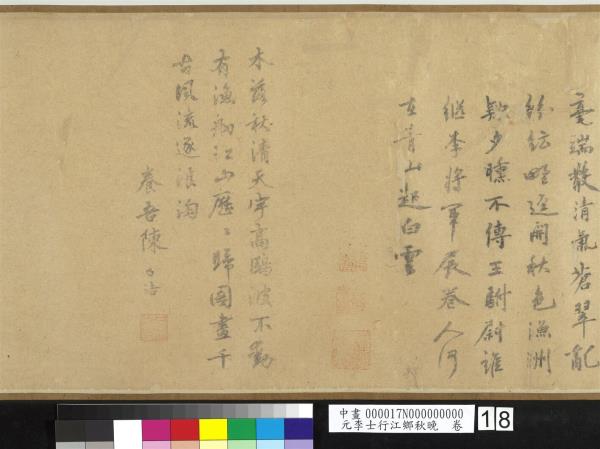 毫端散清氣蒼翠亂
紛紜野逕開秋色漁洲
歎夕曛不傳王駙尉誰
繼李將軍展卷人何
在青山起白雲
木落秋清天宇高鷗波不動
有漁舠江山歷〻歸圖畫千
古風流逐浪淘
養吾陳
中畫 000017N000000000
元李士行江鄉秋晚 卷
18